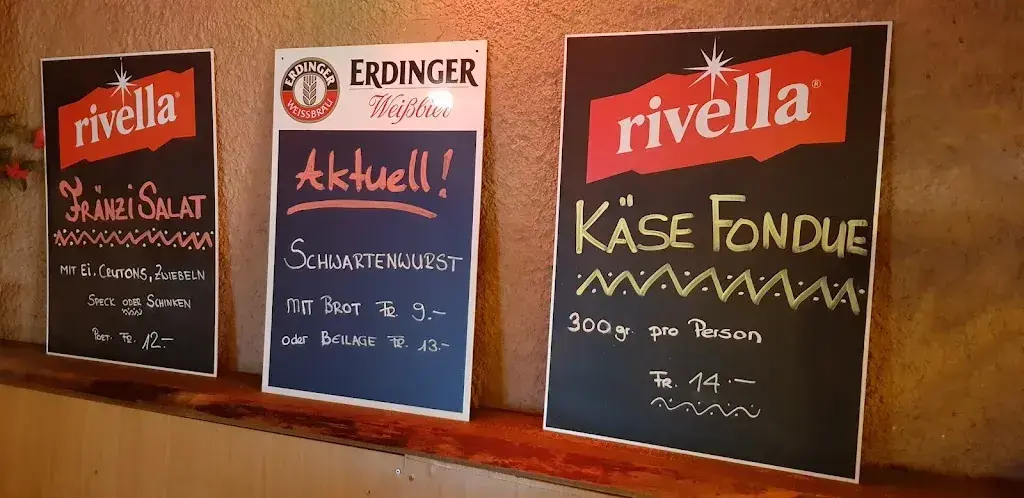 rivella®
FRÄNZI SALAT
MIT EI. CRUTONS, ZWIEBELN
SPECK ODER SCHINKEN
PORT. FR. 12.-
ERDINGER
WEISSBRÄU
ERDINGER
Weißbier
Aktuell!
SCHWARTENWURST
MIT BROT FR. 9.-
oder BEILAGE FR. 13.-
rivella®
KÄSE FONDUE
300gr. pro Person
FR. 14.-